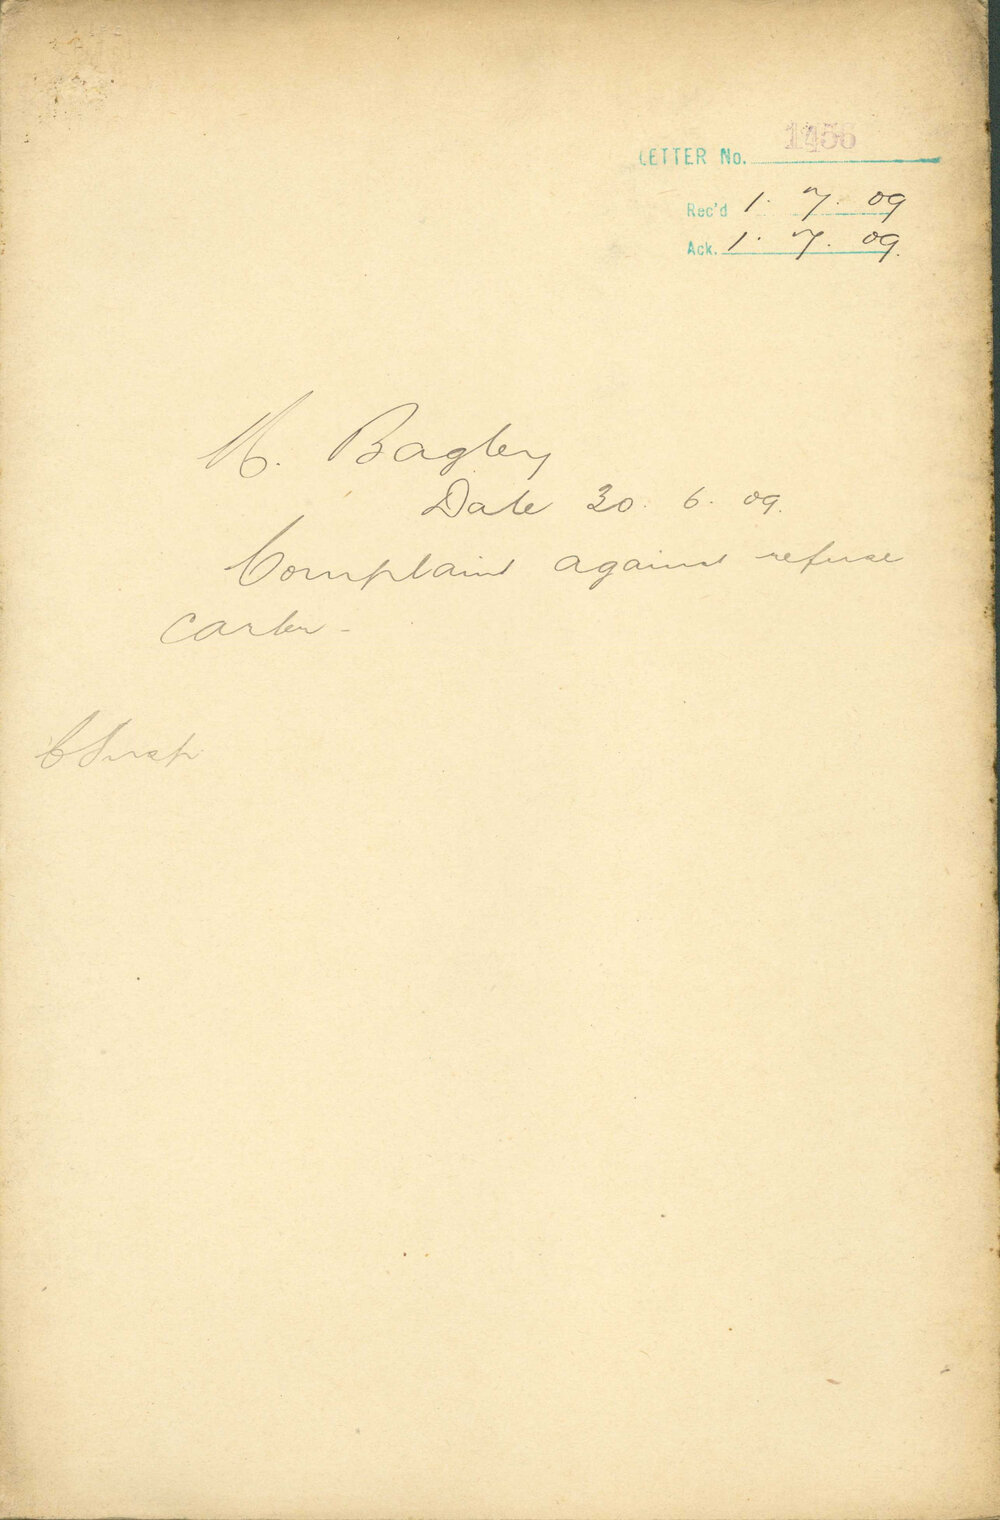 LETTER No. 1456
Rec'd 1. 7. 09
Ack. 1. 7. 09.
H. Bagley
Date 30. 6. 09.
Complaint against refuse
carter -
C Insp